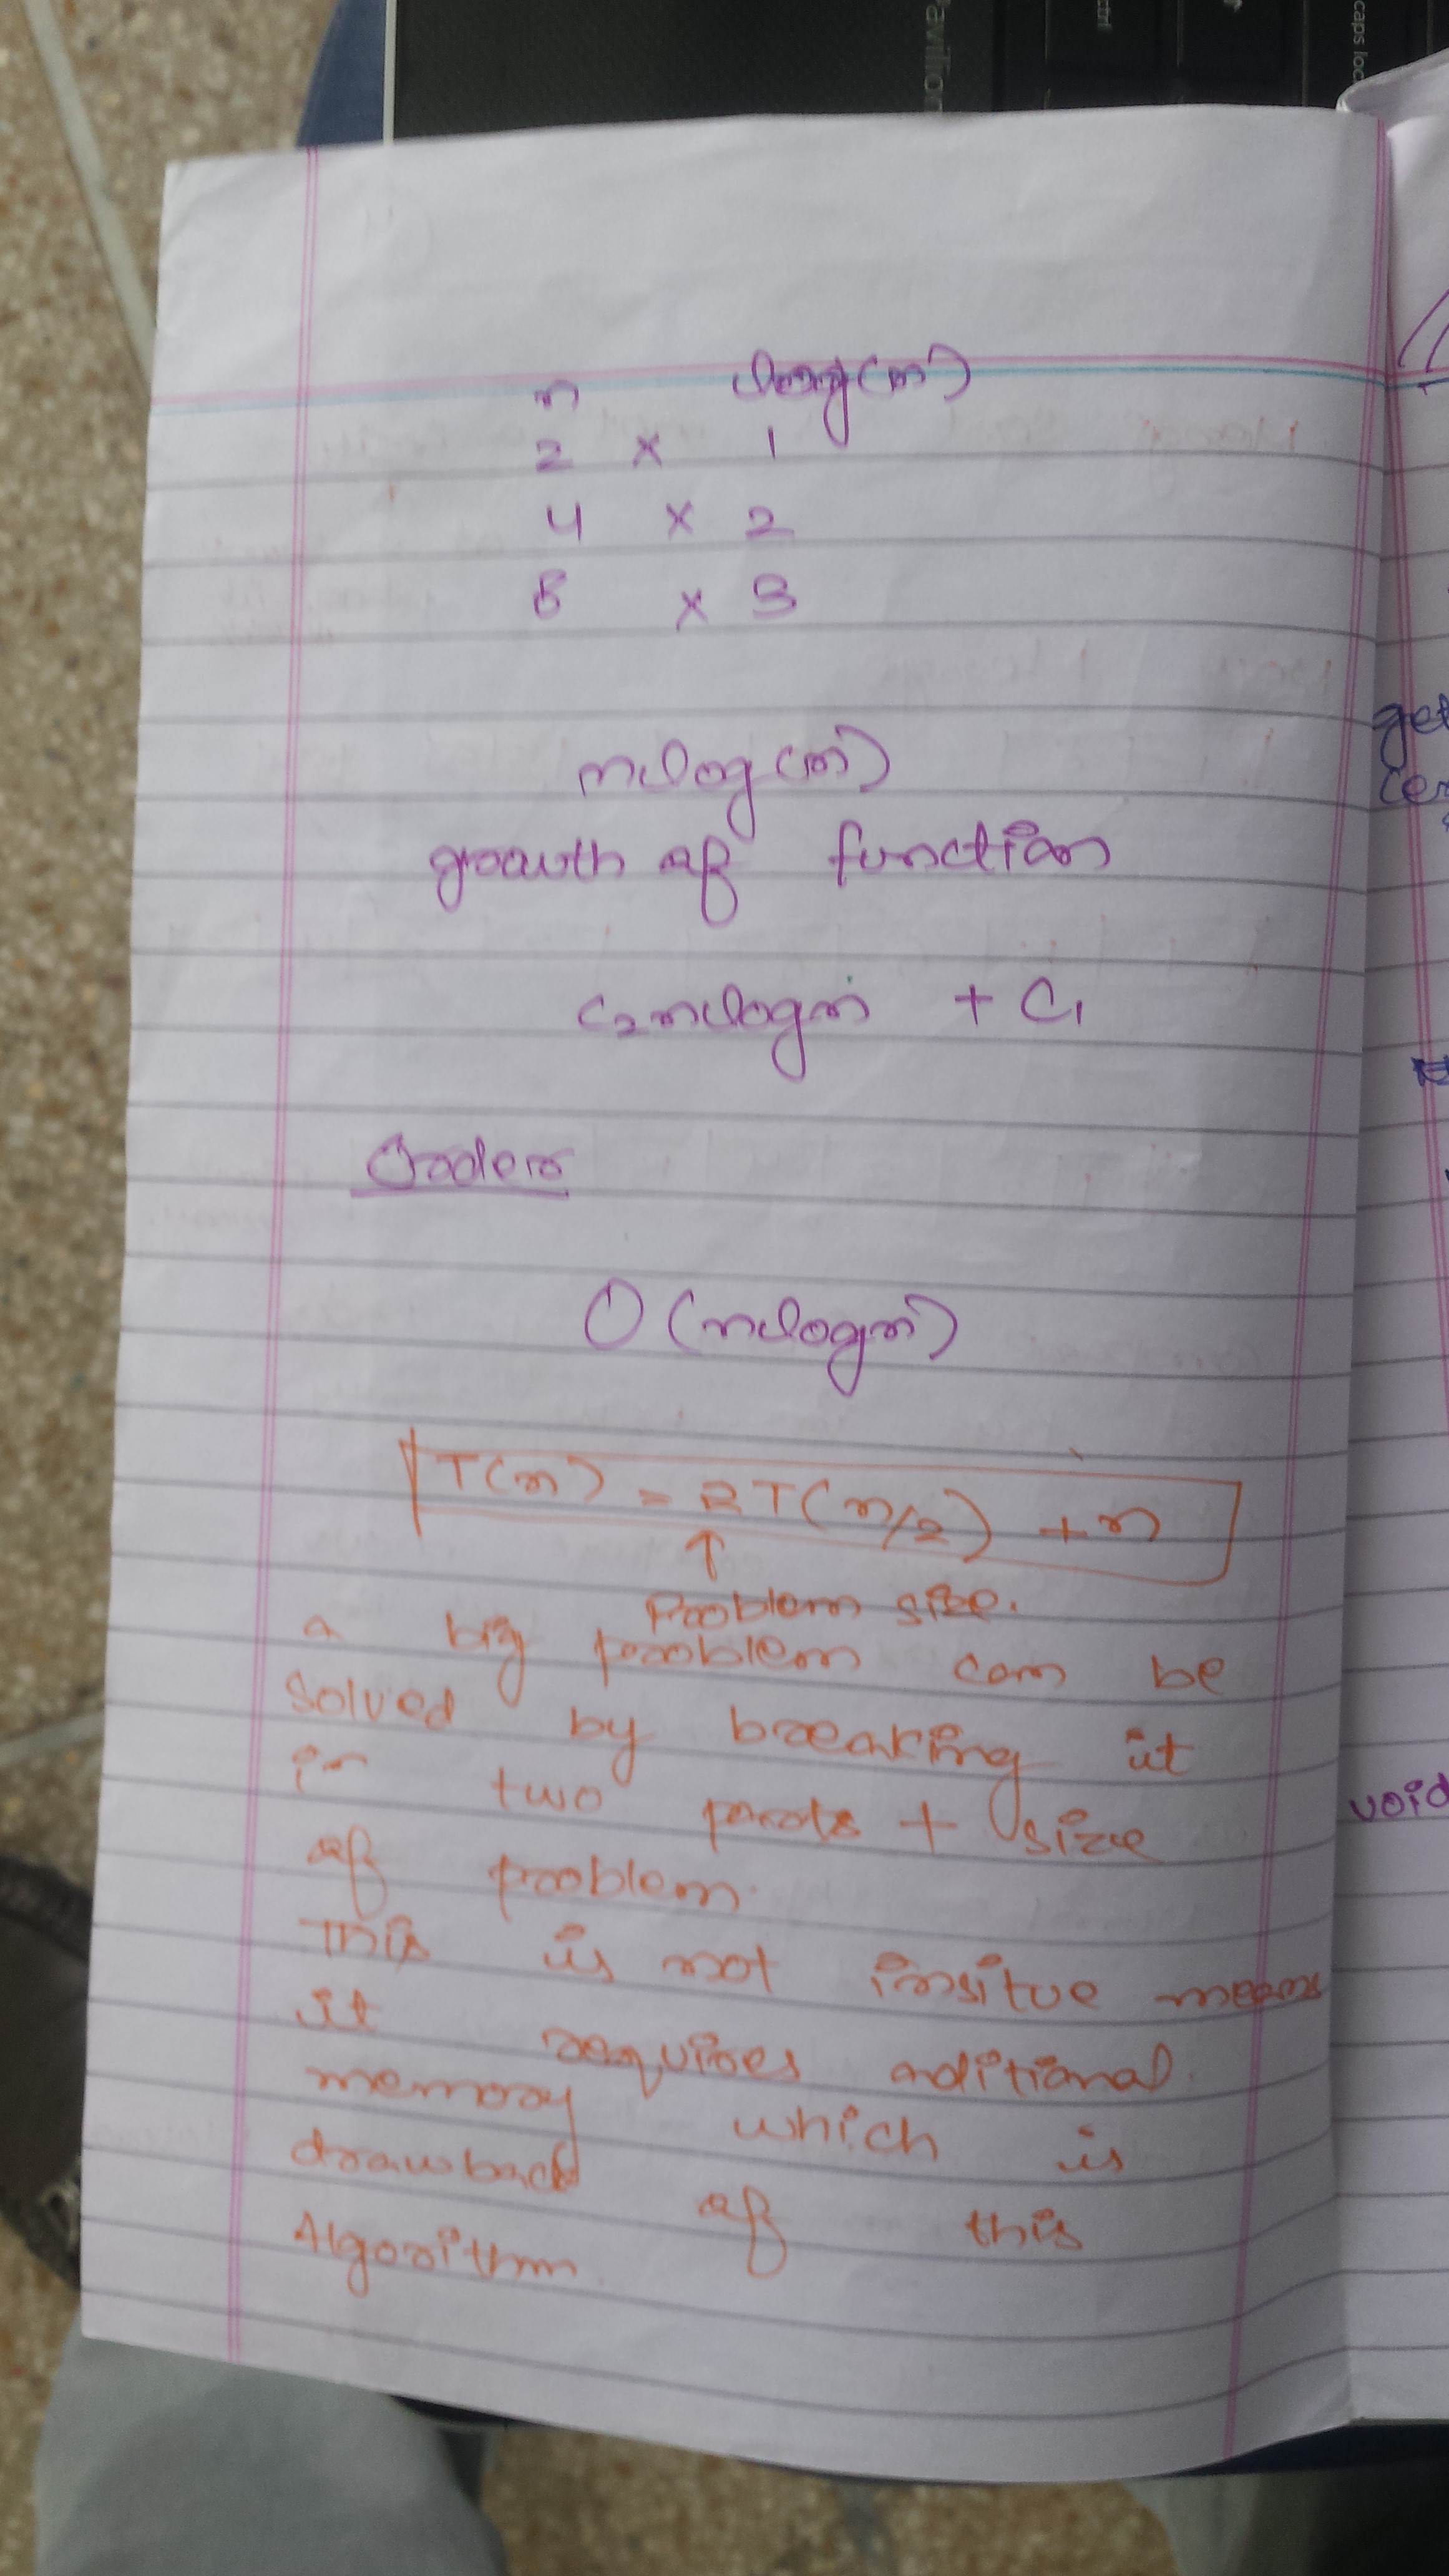 Pavilion
ctrl
caps loc
n log(n)
2 × 1
4 × 2
8 × 3
nlog(n)
growth of function
c2nlogn + C1
Order
O(nlogn)
T(n) = 2T(n/2) + n
↑
Problem size.
a big problem can be
solved by breaking it
in two parts + size
of problem.
This is not insitue means
it requires aditional
memory which is
drawback of this
Algorithm.
get
void